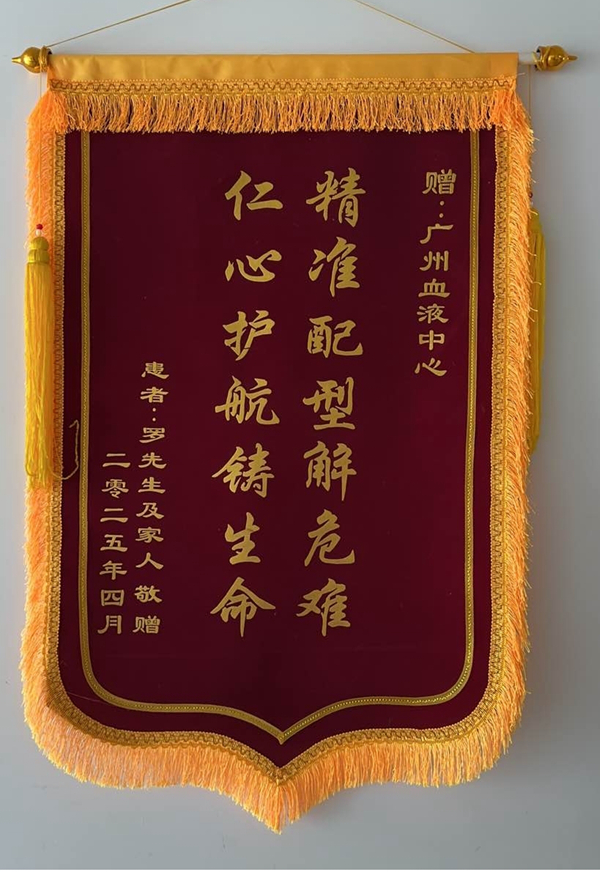 赠：广州血液中心
精准配型解危难
仁心护航铸生命
患者：罗先生及家人敬赠
二零二五年四月